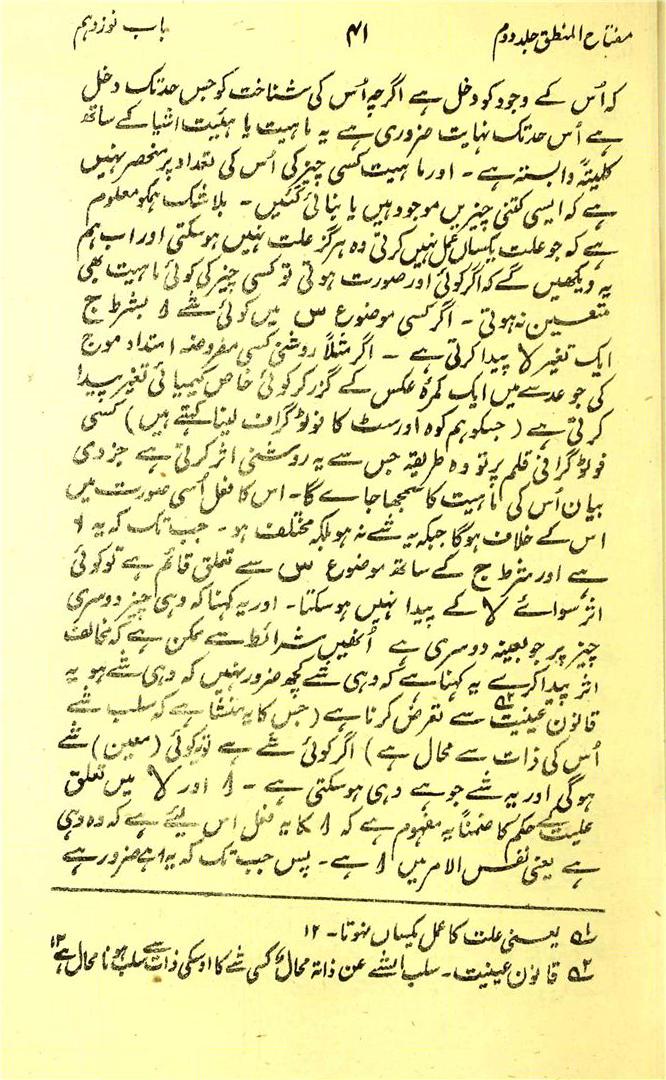 مفتاح المنطق جلد دوم ۴۱ باب نوزدہم
کہ اُس کے وجود کو دخل ہے اگرچہ اُس کی شناخت کو جس حد تک دخل
ہے اُس حد تک نہایت ضروری ہے یہ ماہیت یا ہیئیت اشیا کے ساتھ
کلیتہً وابستہ ہے۔ اور ماہیت کسی چیز کی اُس کی تعداد پر منحصر نہیں
ہے کہ ایسی کتنی چیزیں موجود ہیں یا بنائی گئیں۔ بلاشک ہمکو معلوم
ہے کہ جو علت یکساں عمل نہیں کرتی وہ ہرگز علت نہیں ہوسکتی اور اب ہم
یہ دیکھیں گے کہ اگر کوئی اور صورت ہوتی تو کسی چیز کی کوئی ماہیت بھی
متعین نہ ہوتی۔ اگر کسی موضوع س میں کوئی شے ا بشرط ج
ایک تغیر لا پیدا کرتی ہے ۔ اگر مثلاً روشنی کسی مفروضہ امتداد موج
کی جو عدسے میں ایک کمرۂ عکس کے گزر کر کوئی خاص کیمیائی تغیر پیدا
کرتی ہے (جسکو ہم کوہ اورسٹ کا فوٹو گراف لینا کہتے ہیں) کسی
فوٹو گرافی قلم پر تو وہ طریقہ جس سے یہ روشنی اثر کرتی ہے جزدی
بیان اُس کی ماہیت کا سمجھا جاے گا۔ اس کا فعل اُسی صورت میں
اس کے خلاف ہوگا جبکہ یہ شے نہ ہو بلکہ مختلف ہو۔ جب تک کہ یہ ا
ہے اور شرط ج کے ساتھ موضوع س سے تعلق قائم ہے تو کوئی
اثر سوائے لا کے پیدا نہیں ہوسکتا۔ اور یہ کہنا کہ وہی چیز دوسری
چیز پر جو بعینہ دوسری ہے اُنھیں شرائط سے ممکن ہے کہ مخالف
اثر پیدا کرے یہ کہنا ہے کہ وہی شے کچھ ضرور نہیں کہ وہی شے ہو یہ
قانون عینیت۲ سے تعرض کرنا ہے (جس کا یہ منشا ہے کہ سلب شے
اُس کی ذات سے محال ہے) اگر کوئی شے ہے تو کوئی (معین) شے
ہوگی اور یہ شے جو ہے وہی ہوسکتی ہے۔ ا اور لا میں تعلق
علیت کے حکم کا ضمناً یہ مفہوم ہے کہ ا کا یہ فعل اس لیئے ہے کہ وہ وہی
ہے یعنی نفس الامر میں ا ہے۔ پس جب تک کہ یہ ا ہے ضرور ہے
۱ یعنی علت کا عمل یکساں نہوتا۔ ۱۲
۲ قانون عینیت۔ سلب الشے عن ذاتہ محال کسی شے کا اوسکی ذات سے سلب ہونا محال ہے ۱۲